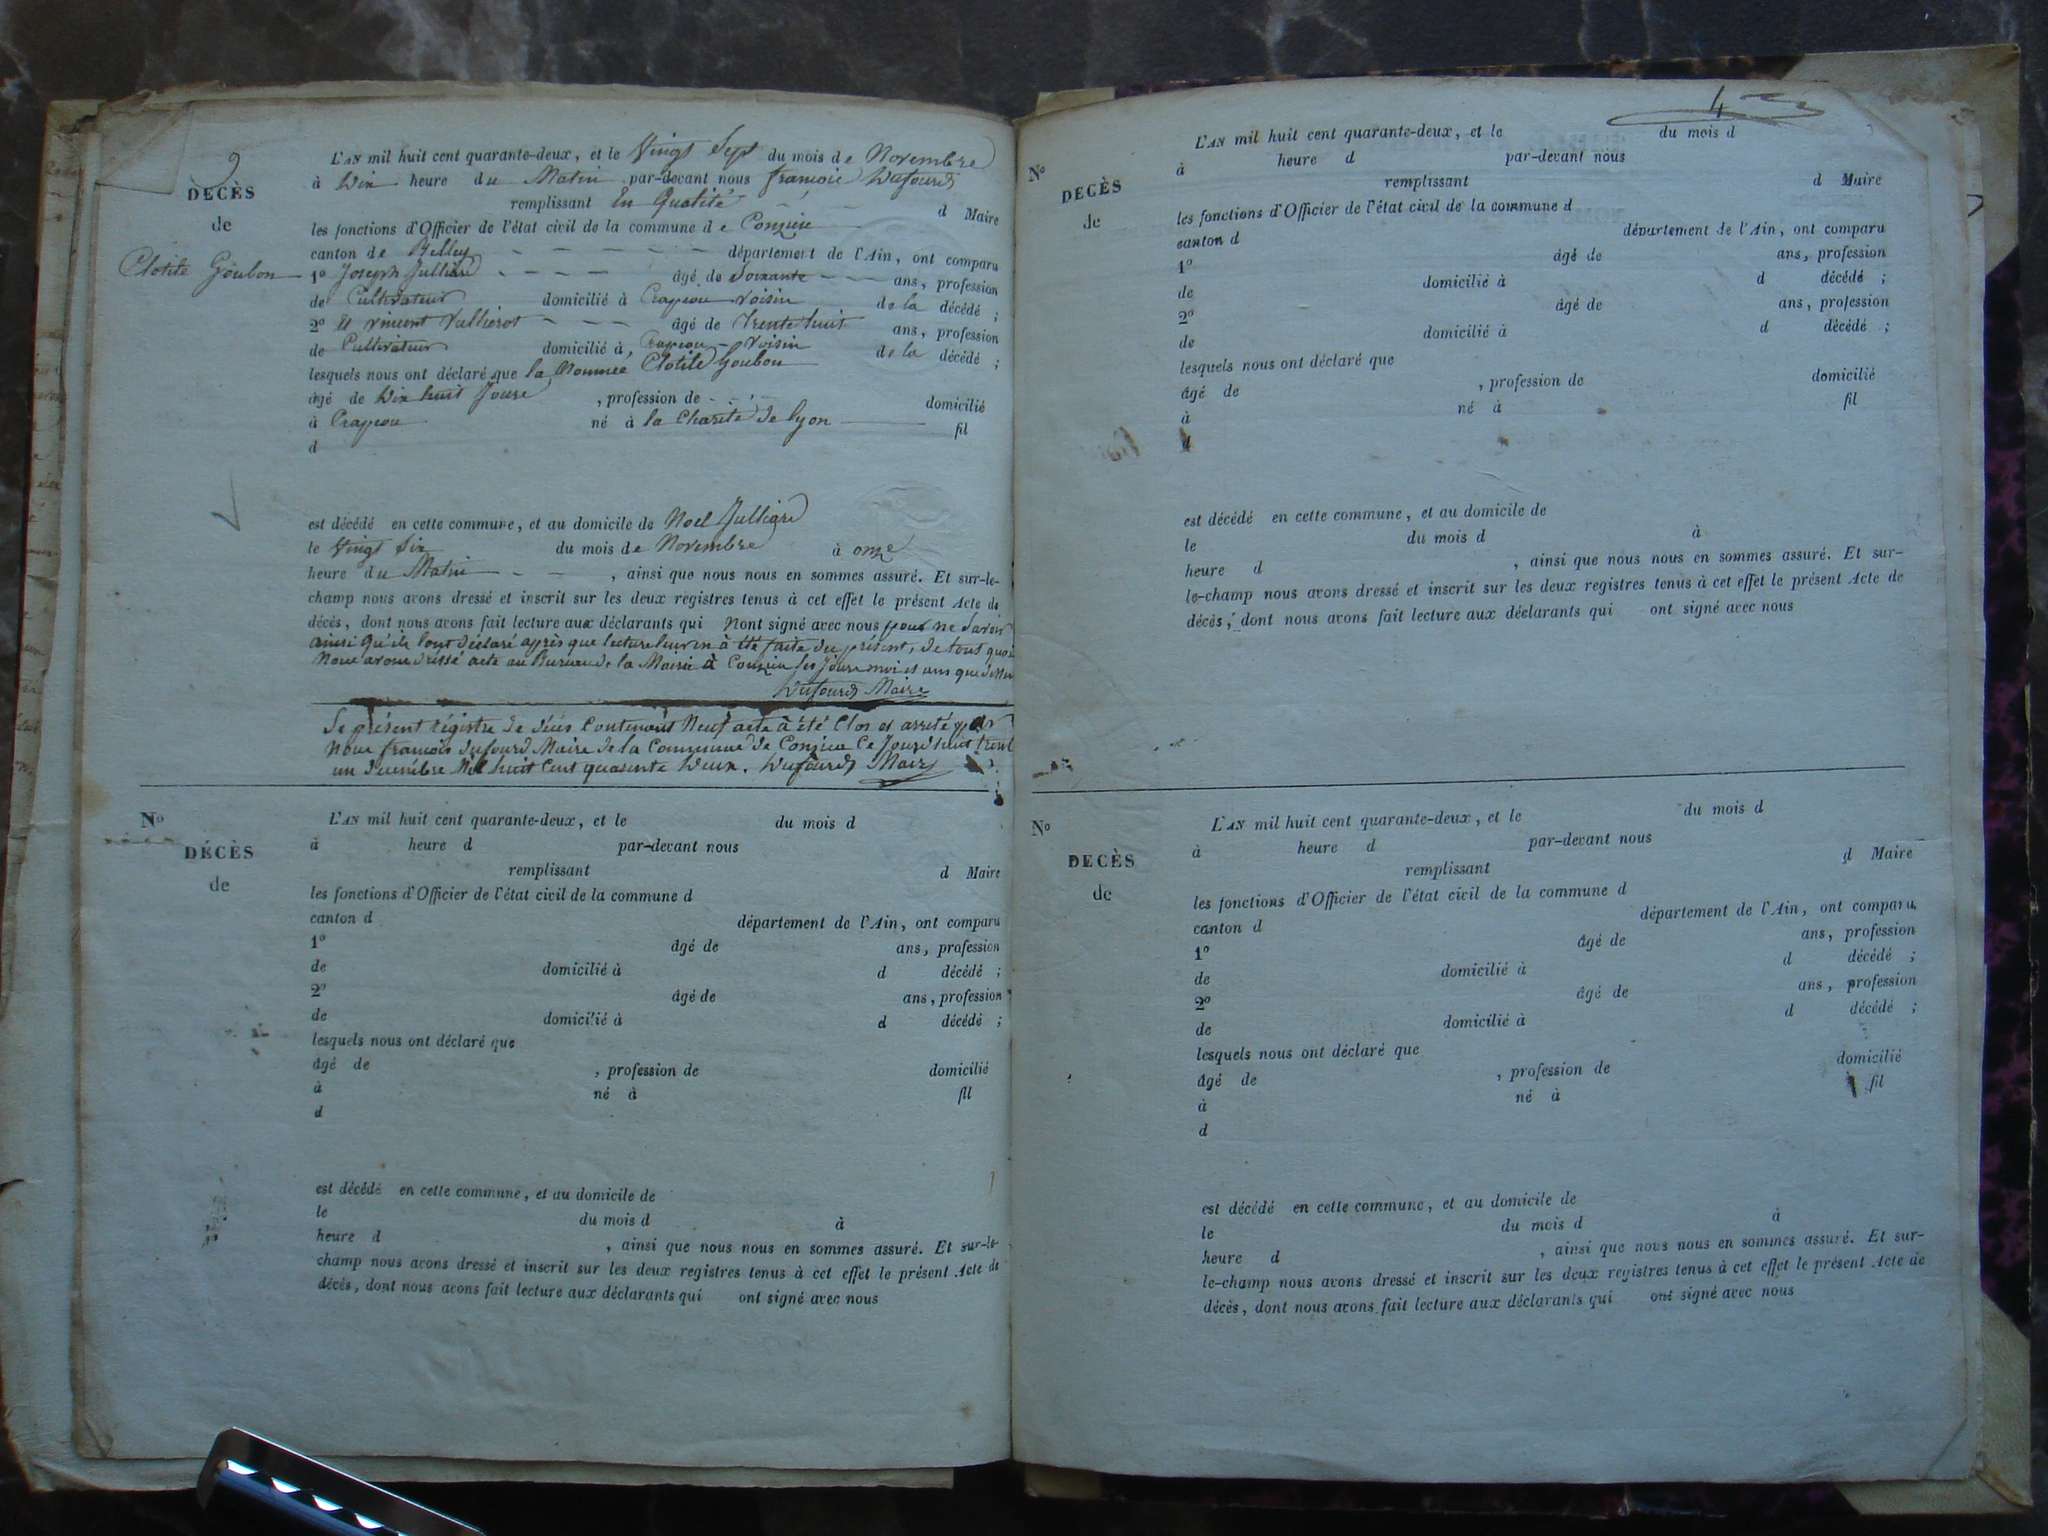 9
DÉCÈS
de
Clotite Goubon
L'AN mil huit cent quarante-deux, et le Vingt Sept du mois de Novembre
à Dix heure du Matin par-devant nous francois Dufourd
remplissant En Qualité d Maire
les fonctions d'Officier de l'état civil de la commune de Conzieu
canton de Belley département de l'Ain, ont comparu
1º Joseph Jullierd âgé de Soixante ans, profession
de Cultivateur domicilié à Crapeou Voisin de la décédé ;
2º Et Vincent Vullierot âgé de Trente huit ans, profession
de Cultivateur domicilié à Crapeou Voisin de la décédé ;
lesquels nous ont déclaré que la Nommée Clotite Goubon
âgé de Dix huit Jours , profession de domicilié
à Crapeou né à la Charité de lyon fil
d
est décédé en cette commune, et au domicile de Noel Jullierd
le Vingt Six du mois de Novembre à onze
heure du Matin , ainsi que nous nous en sommes assuré. Et sur-le-
champ nous avons dressé et inscrit sur les deux registres tenus à cet effet le présent Acte de
décès, dont nous avons fait lecture aux déclarants qui Nont signé avec nous pour ne Savoir
ainsi Qu'ils l'ont déclaré après que lecture leur en à été faite du présent, de tous quoi
Nous avons dressé acte au Bureau de la Mairie à Conzieu les Jours mois et ans que dessus
Dufourd Maire
Le présent régistre de décès Contenant Neuf acte à été Clos et arreté par
Nous francois Dufourd Maire de la Commune de Conzieu Ce Jourd'huit trent
un décembre Mil huit Cent quarante Deux. Dufourd Maire
Nº
DÉCÈS
de
L'AN mil huit cent quarante-deux, et le du mois d
à heure d par-devant nous
remplissant d Maire
les fonctions d'Officier de l'état civil de la commune d
canton d département de l'Ain, ont comparu
1º âgé de ans, profession
de domicilié à d décédé ;
2º âgé de ans, profession
de domicilié à d décédé ;
lesquels nous ont déclaré que
âgé de , profession de domicilié
à né à fil
d
est décédé en cette commune, et au domicile de
le du mois d à
heure d , ainsi que nous nous en sommes assuré. Et sur-le-
champ nous avons dressé et inscrit sur les deux registres tenus à cet effet le présent Acte de
décès, dont nous avons fait lecture aux déclarants qui ont signé avec nous
4
Nº
DÉCÈS
de
L'AN mil huit cent quarante-deux, et le du mois d
à heure d par-devant nous
remplissant d Maire
les fonctions d'Officier de l'état civil de la commune d
canton d département de l'Ain, ont comparu
1º âgé de ans, profession
de domicilié à d décédé ;
2º âgé de ans, profession
de domicilié à d décédé ;
lesquels nous ont déclaré que
âgé de , profession de domicilié
à né à fil
d
est décédé en cette commune, et au domicile de
le du mois d à
heure d , ainsi que nous nous en sommes assuré. Et sur-
le-champ nous avons dressé et inscrit sur les deux registres tenus à cet effet le présent Acte de
décès, dont nous avons fait lecture aux déclarants qui ont signé avec nous
Nº
DECÈS
de
L'AN mil huit cent quarante-deux, et le du mois d
à heure d par-devant nous
remplissant d Maire
les fonctions d'Officier de l'état civil de la commune d
canton d département de l'Ain, ont comparu
1º âgé de ans, profession
de domicilié à d décédé ;
2º âgé de ans, profession
de domicilié à d décédé ;
lesquels nous ont déclaré que
âgé de , profession de domicilié
à né à fil
d
est décédé en cette commune, et au domicile de
le du mois d à
heure d , ainsi que nous nous en sommes assuré. Et sur-
le-champ nous avons dressé et inscrit sur les deux registres tenus à cet effet le présent Acte de
décès, dont nous avons fait lecture aux déclarants qui ont signé avec nous